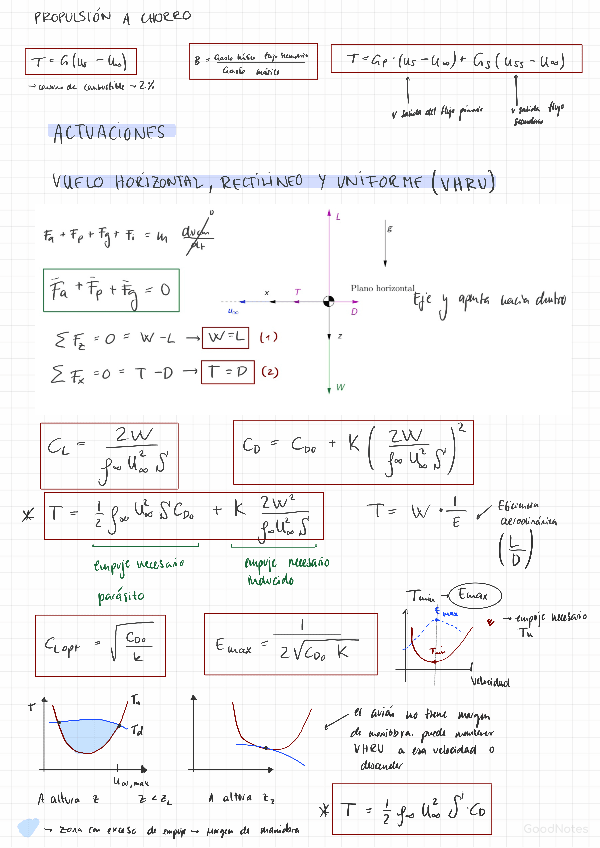 PROPULSIÓN A CHORRO
T = G(us − u∞)
→ consumo de combustible → 2%
B = Gasto másico flujo secundario / Gasto másico
T = Gp·(us − u∞) + Gs(uss − u∞)
v salida del flujo primario
v salida flujo secundario
ACTUACIONES
VUELO HORIZONTAL, RECTILINEO Y UNIFORME (VHRU)
Fa + Fp + Fg + Fi = m dvcm/dt 0
F̄a + F̄p + F̄g = 0
ΣFz = 0 = W − L → W = L (1)
ΣFx = 0 = T − D → T = D (2)
L
g
x
T
Plano horizontal
u∞
D
z
W
Eje y apunta hacia dentro
CL = 2W / ρ∞ u∞² S
CD = CD0 + K (2W / ρ∞ u∞² S)²
* T = 1/2 ρ∞ u∞² S CD0 + K 2W² / ρ∞ u∞² S
empuje necesario parásito
empuje necesario inducido
T = W · 1/E
Eficiencia aerodinámica (L/D)
CLopt = √(CD0 / k)
Emax = 1 / 2√(CD0 K)
Tmin → Emax
Emax
Tmin
→ empuje necesario Tn
velocidad
T
Tn
Td
u∞,max
A altura z z < zL
A altura z2
el avión no tiene margen
de maniobra. puede mantener
VHRU a esa velocidad o
descender
→ zona con exceso de empuje → margen de maniobra
* T = 1/2 ρ∞ u∞² S · CD
GoodNotes